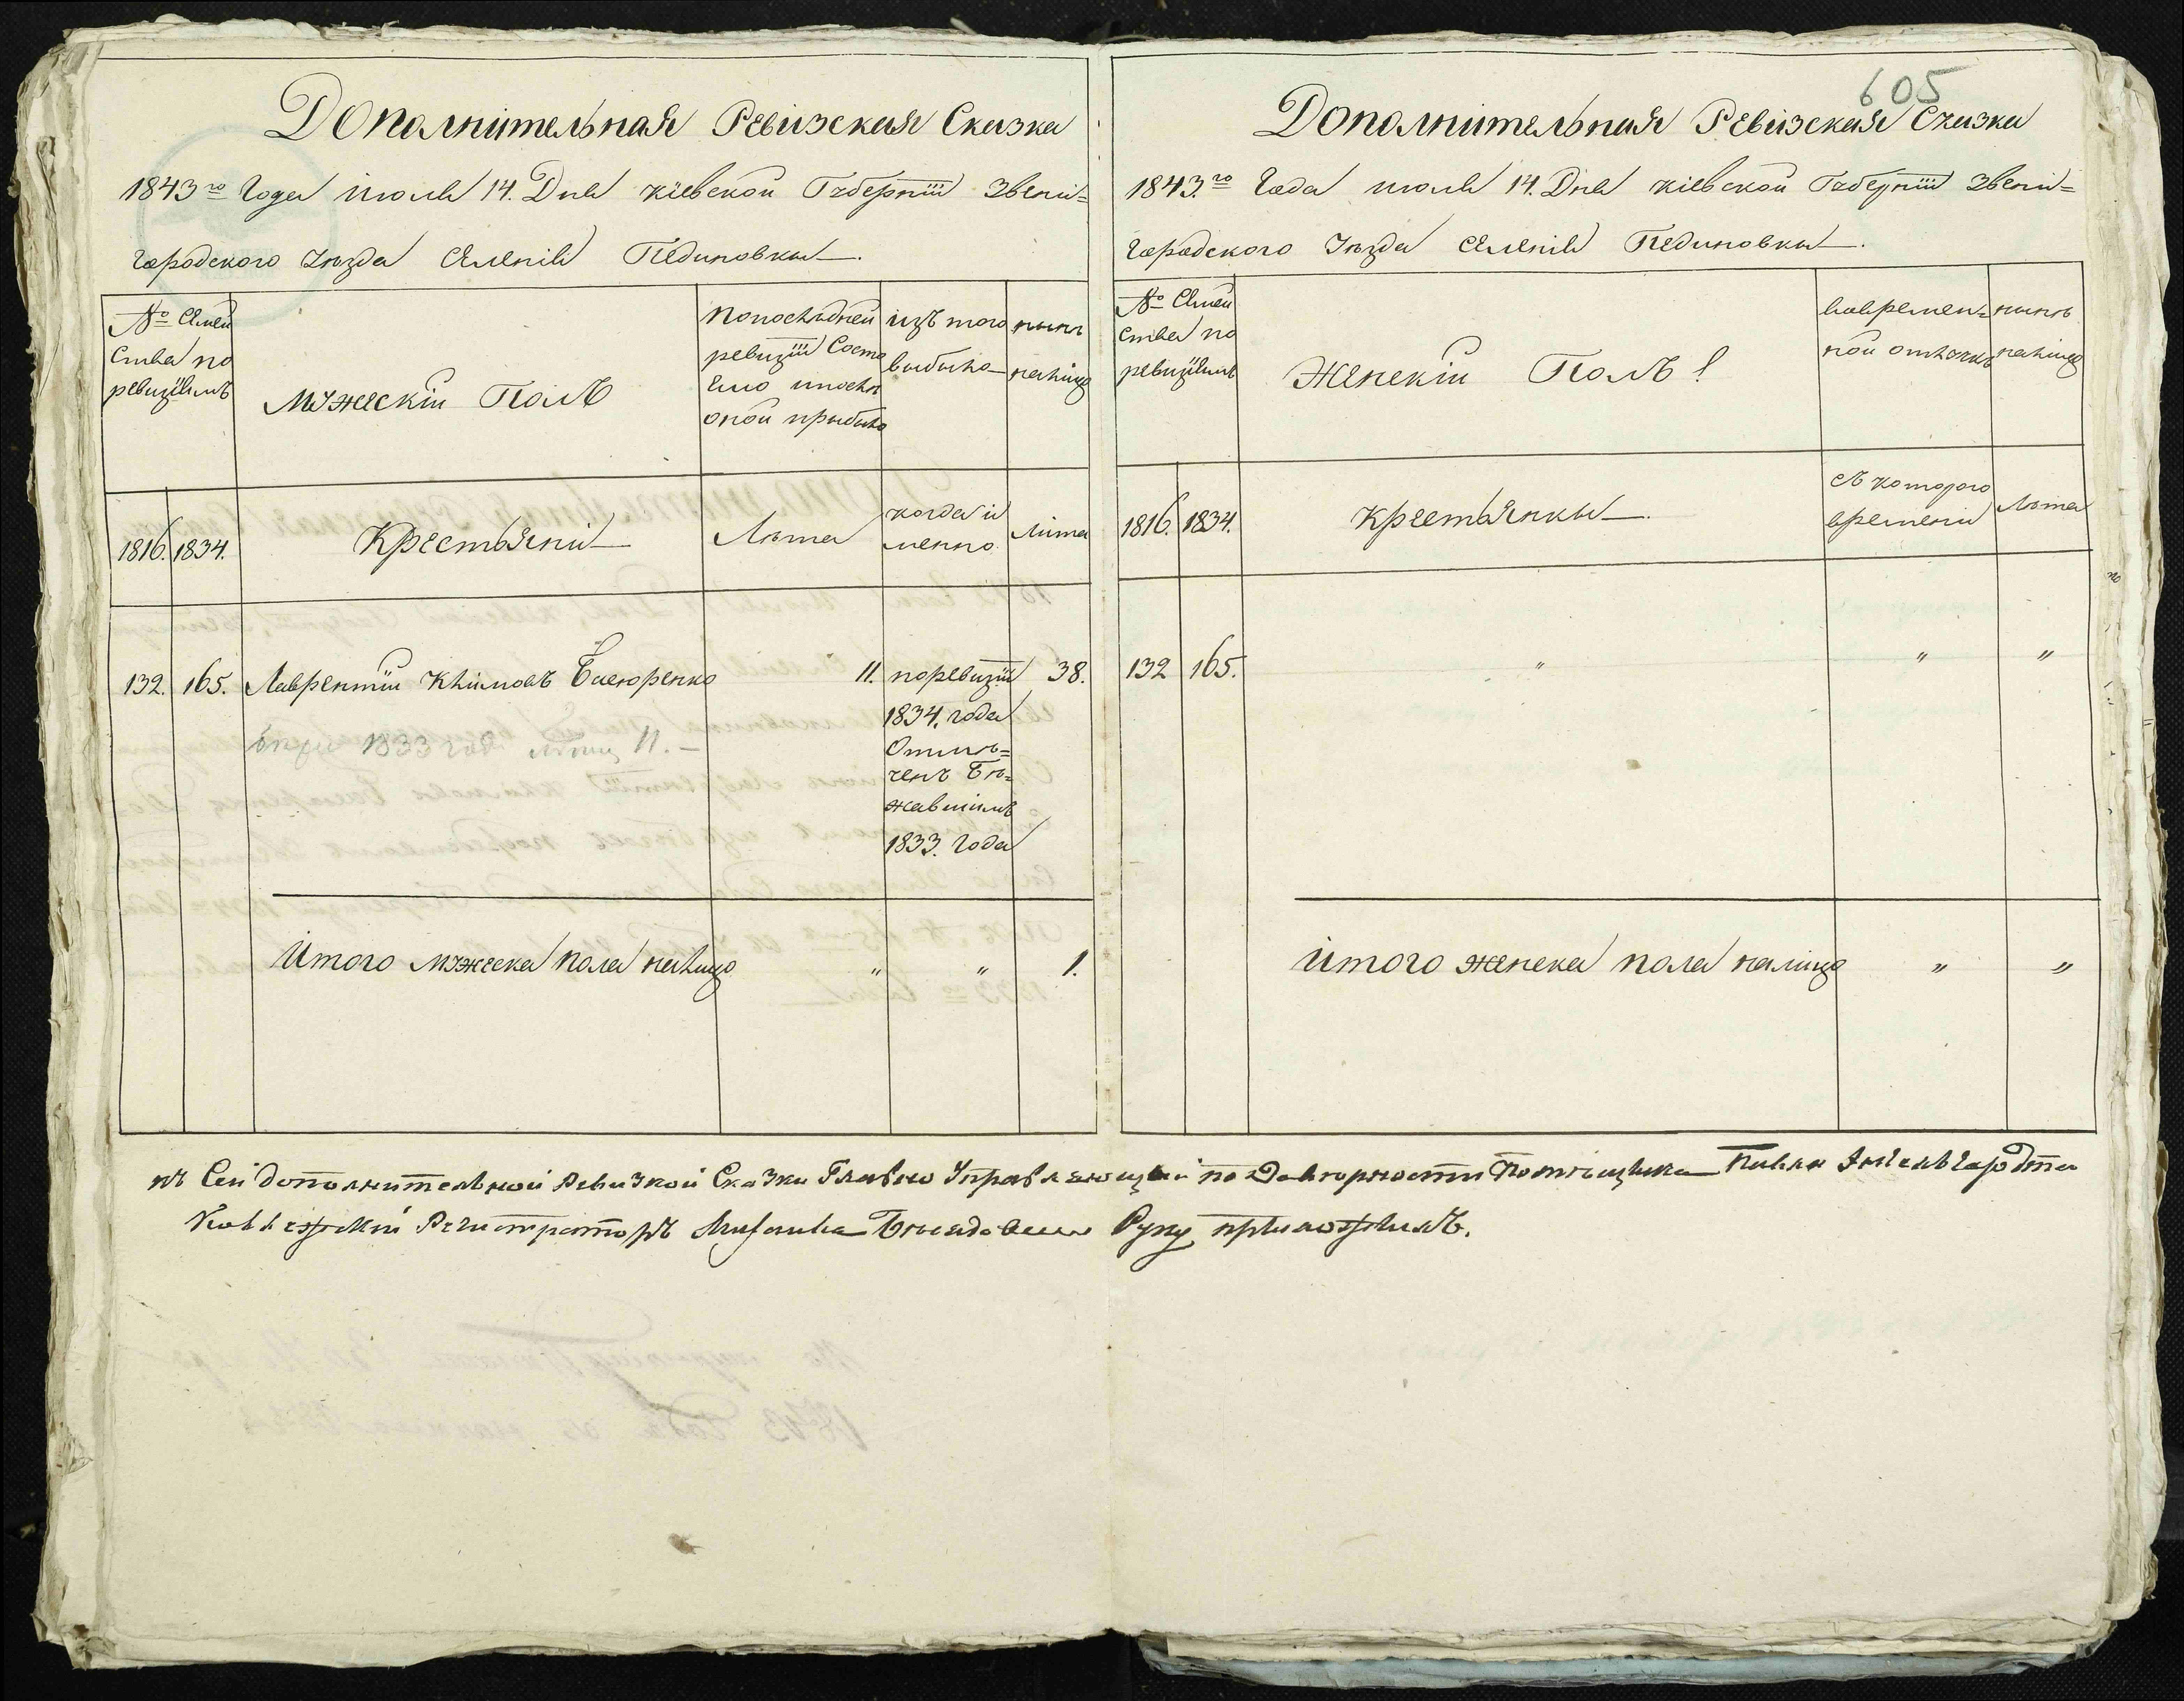 605
Дополнительная Ревизская Сказка
1843го Года июля 14. Дня Кіевской Губерніи Звени=
городского Уѣзда Селенія Пединовки
№ Семей
ства по
ревизіямъ
мужескій Полъ
по послѣдней
ревизіи Состо
яло и послѣ
оной прибыло
изъ того
выбыло
нынѣ
налицо
1816. 1834.
Крестьяни
Лѣта
когда и
менно
Лѣта
132. 165. Лаврентій Климовъ 11. по ревизіи 38.
1834. года
Отмѣ=
ченъ Бѣ=
жавшимъ
1833. года
1833 году 11. —
Итого мужеска пола налицо " " 1.
Дополнительная Ревизская Сказка
1843.го Года июля 14. Дня Кіевской Губерніи Звени=
городского Уѣзда Селенія Пединовки.
№ Семей
ства по
ревизіямъ
Женскій Полъ
во времен=
ной отлучкѣ
нынѣ
налицо
1816. 1834.
Крестьянки
съ которого
времени
Лѣта
132 165. " " "
Итого женска пола налицо " "
къ Сей дополнительной Ревизкой Сказки Главно Управляющий по Доверности Помѣщика Павла Энгельгардта
Коллежский Регистраторъ Руку приложилъ.